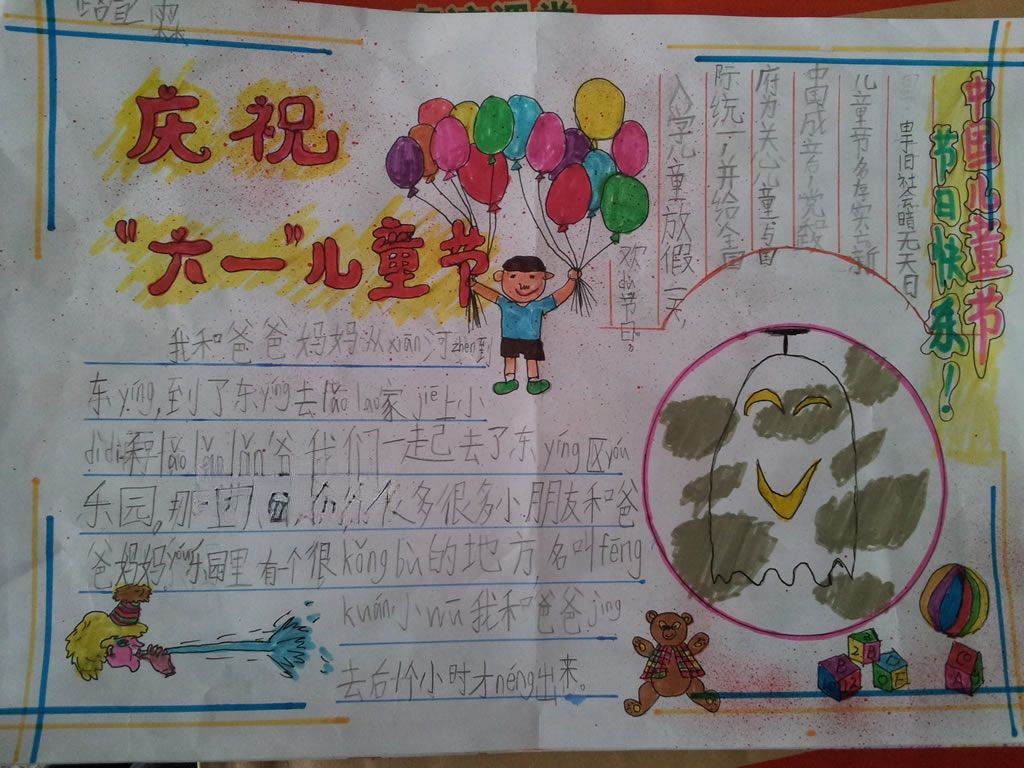 庆祝
“六一”儿童节
我和爸爸妈妈从xiān河zhèn到
东yíng,到了东yíng去lǎo lao家jiē上小
didi
我们一起去了东yíng区yóu
乐园,那 多很多小朋友和爸
爸妈妈 yóu乐园里有一个很kǒng bù的地方,名叫fēng
kuáng小wū我和爸爸jìng
去后1个小时才néng出来。
中国儿童节
节日快乐!
旧社会暗无天日
儿童节多存实
中国成立
府为关心儿童与国
际统一,并给全国
入学儿童放假一天,
欢dù节日。